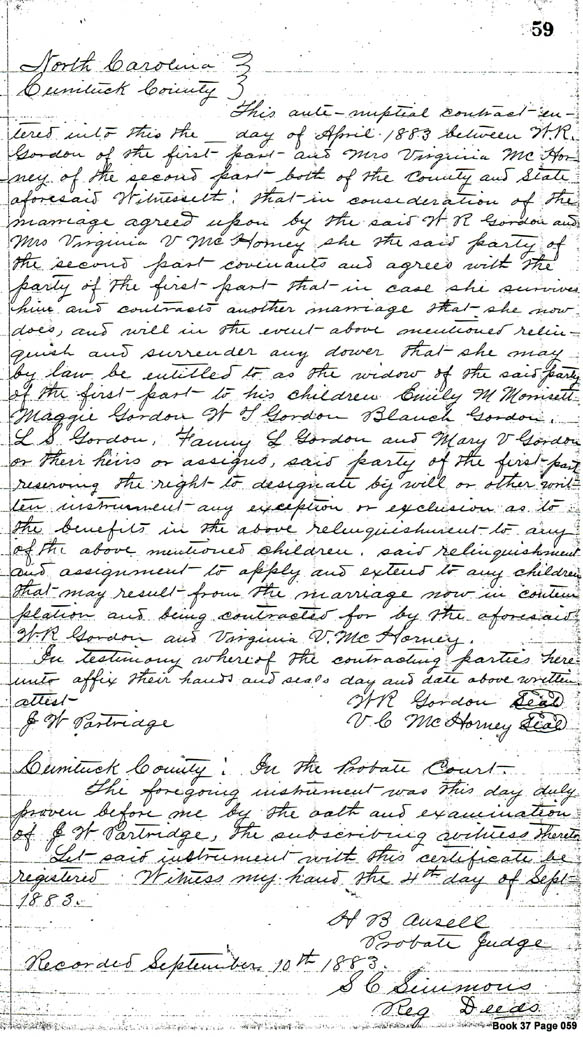 59
North Carolina }
Currituck County }
This ante-nuptial contract en-
tered into this the _ day of April 1883 between W.R.
Gordon of the first part and Mrs Virginia Mc Hor-
ney of the second part both of the County and State
aforesaid Witnesseth: that in consideration of the
marriage agreed upon by the said W R Gordon and
Mrs Virginia V McHorney she the said party of
the second part covinants and agrees with the
party of the first part that in case she survives
him and contracts another marriage that she now
does, and will in the event above mentioned relin-
quish and surrender any dower that she may
by law be entitled to as the widow of the said party
of the first part to his children Emily M Morrisett
Maggie Gordon W T Gordon Blanch Gordon.
L S Gordon, Fanny L Gordon and Mary V Gordon
or their heirs or assigns, said party of the first part
reserving the right to designate by will or other writ-
ten instrument any exception or exclusion as to
the benefits in the above relinquishment to any
of the above mentioned children. said relinquishment
and assignment to apply and extend to any children
that may result from the marriage now in contem
plation and being contracted for by the aforesaid
W R Gordon and Virginia V. McHorney.
In testimony whereof the contracting parties here
unto affix their hands and seals day and date above written
attest W R Gordon Seal
J W Partridge V C McHorney Seal
Currituck County: In the Probate Court
The foregoing instrument was this day duly
proven before me by the oath and examination
of J W Partridge, the subscribing witness thereto
Let said instrument with this certificate be
registered Witness my hand the 4th day of Sept-
1883.
H B Ansell
Probate Judge
Recorded September 10th 1883.
S C Simmons
Reg Deeds
Book 37 Page 059